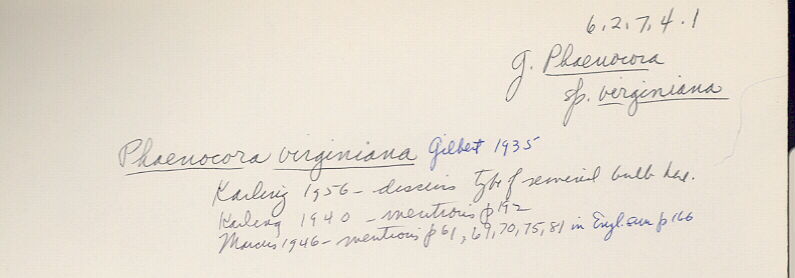 6.2.7.4.1
g. Phaenocora
sp. virginiana
Phaenocora virginiana Gilbert 1935
Karling 1956 - discuss type of seminal bulb here.
Karling 1940 - mentions p 192
Marcus 1946 - mentions p 61, 69, 70, 75, 81 in Engl. sum p 166